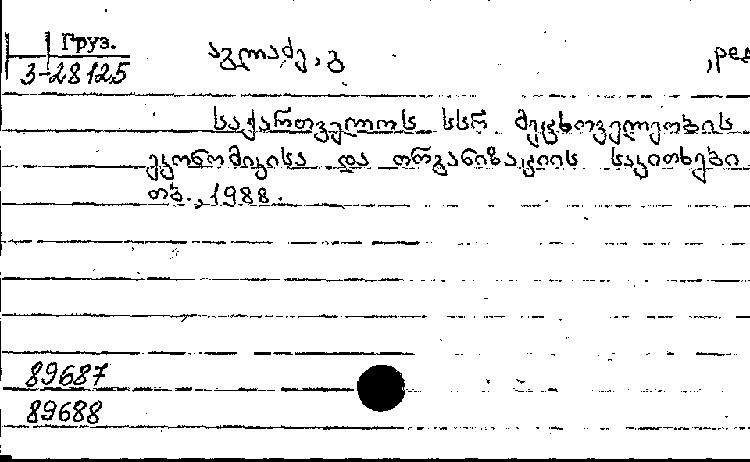 Груз.
3-28125
აგლაძე, გ ,ред
საქართველოს სსრ მეცხოველეობის
ეკონომიკისა და ორგანიზაციის საკითხები
თბ., 1988.
89687
89688